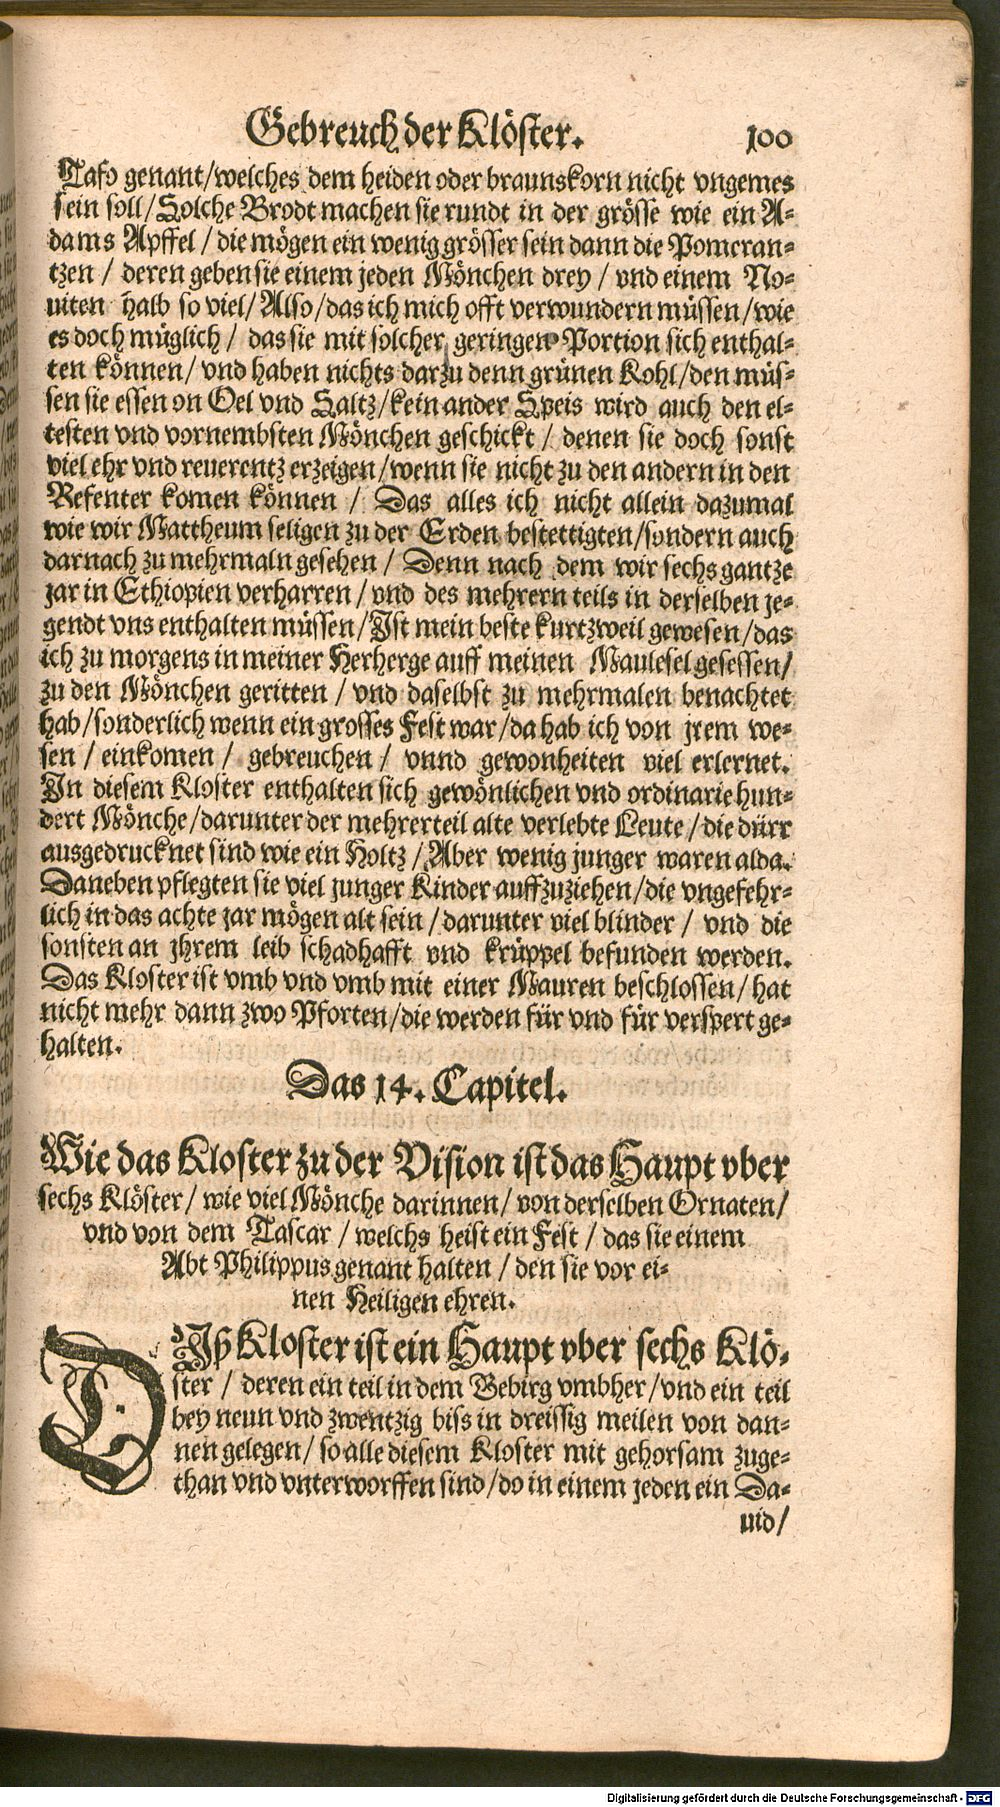 Gebreuch der Klöster. 100
Tafo genant/welches dem heiden oder braunskorn nicht vngemes
sein soll/Solche Brodt machen sie rundt in der grösse wie ein A-
dams Apffel/die mögen ein wenig grösser sein dann die Pomeran-
tzen/deren geben sie einem jeden Mönchen drey/vnd einem No-
uiten halb so viel/Also/das ich mich offt verwundern müssen/wie
es doch müglich/das sie mit solcher geringen Portion sich enthal-
ten können/vnd haben nichts darzu denn grünen Kohl/den müs-
sen sie essen on Oel vnd Saltz/kein ander Speis wird auch den el-
testen vnd vornembsten Mönchen geschickt/denen sie doch sonst
viel ehr vnd reuerentz erzeigen/wenn sie nicht zu den andern in den
Refenter komen können/Das alles ich nicht allein dazumal
wie wir Mattheum seligen zu der Erden bestettigten/sondern auch
darnach zu mehrmaln gesehen/Denn nach dem wir sechs gantze
jar in Ethiopien verharren/vnd des mehrern teils in derselben je-
gendt vns enthalten müssen/Ist mein beste kurtzweil gewesen/das
ich zu morgens in meiner Herberge auff meinen Maulesel gesessen/
zu den Mönchen geritten/vnd daselbst zu mehrmalen benachtet
hab/sonderlich wenn ein grosses Fest war/da hab ich von jrem we-
sen/einkomen/gebreuchen/vnnd gewonheiten viel erlernet.
In diesem Kloster enthalten sich gewönlichen vnd ordinarie hun-
dert Mönche/darunter der mehrerteil alte verlebte Leute/die dürr
ausgedrucknet sind wie ein Holtz/Aber wenig junger waren alda.
Daneben pflegten sie viel junger Kinder auffzuziehen/die vngefehr-
lich in das achte jar mögen alt sein/darunter viel blinder/vnd die
sonsten an jhrem leib schadhafft vnd krüppel befunden werden.
Das Kloster ist vmb vnd vmb mit einer Mauren beschlossen/hat
nicht mehr dann zwo Pforten/die werden für vnd für verspert ge-
halten.
Das 14. Capitel.
Wie das Kloster zu der Vision ist das Haupt vber
sechs Klöster/wie viel Mönche darinnen/von derselben Ornaten/
vnd von dem Tascar/welchs heist ein Fest/das sie einem
Abt Philippus genant halten/den sie vor ei-
nen Heiligen ehren.
DIß Kloster ist ein Haupt vber sechs Klö-
ster/deren ein teil in dem Gebirg vmbher/vnd ein teil
bey neun vnd zwentzig biss in dreissig meilen von dan-
nen gelegen/so alle diesem Kloster mit gehorsam zuge-
than vnd vnterworffen sind/do in einem jeden ein Da-
uid/
Digitalisierung gefördert durch die Deutsche Forschungsgemeinschaft - DFG